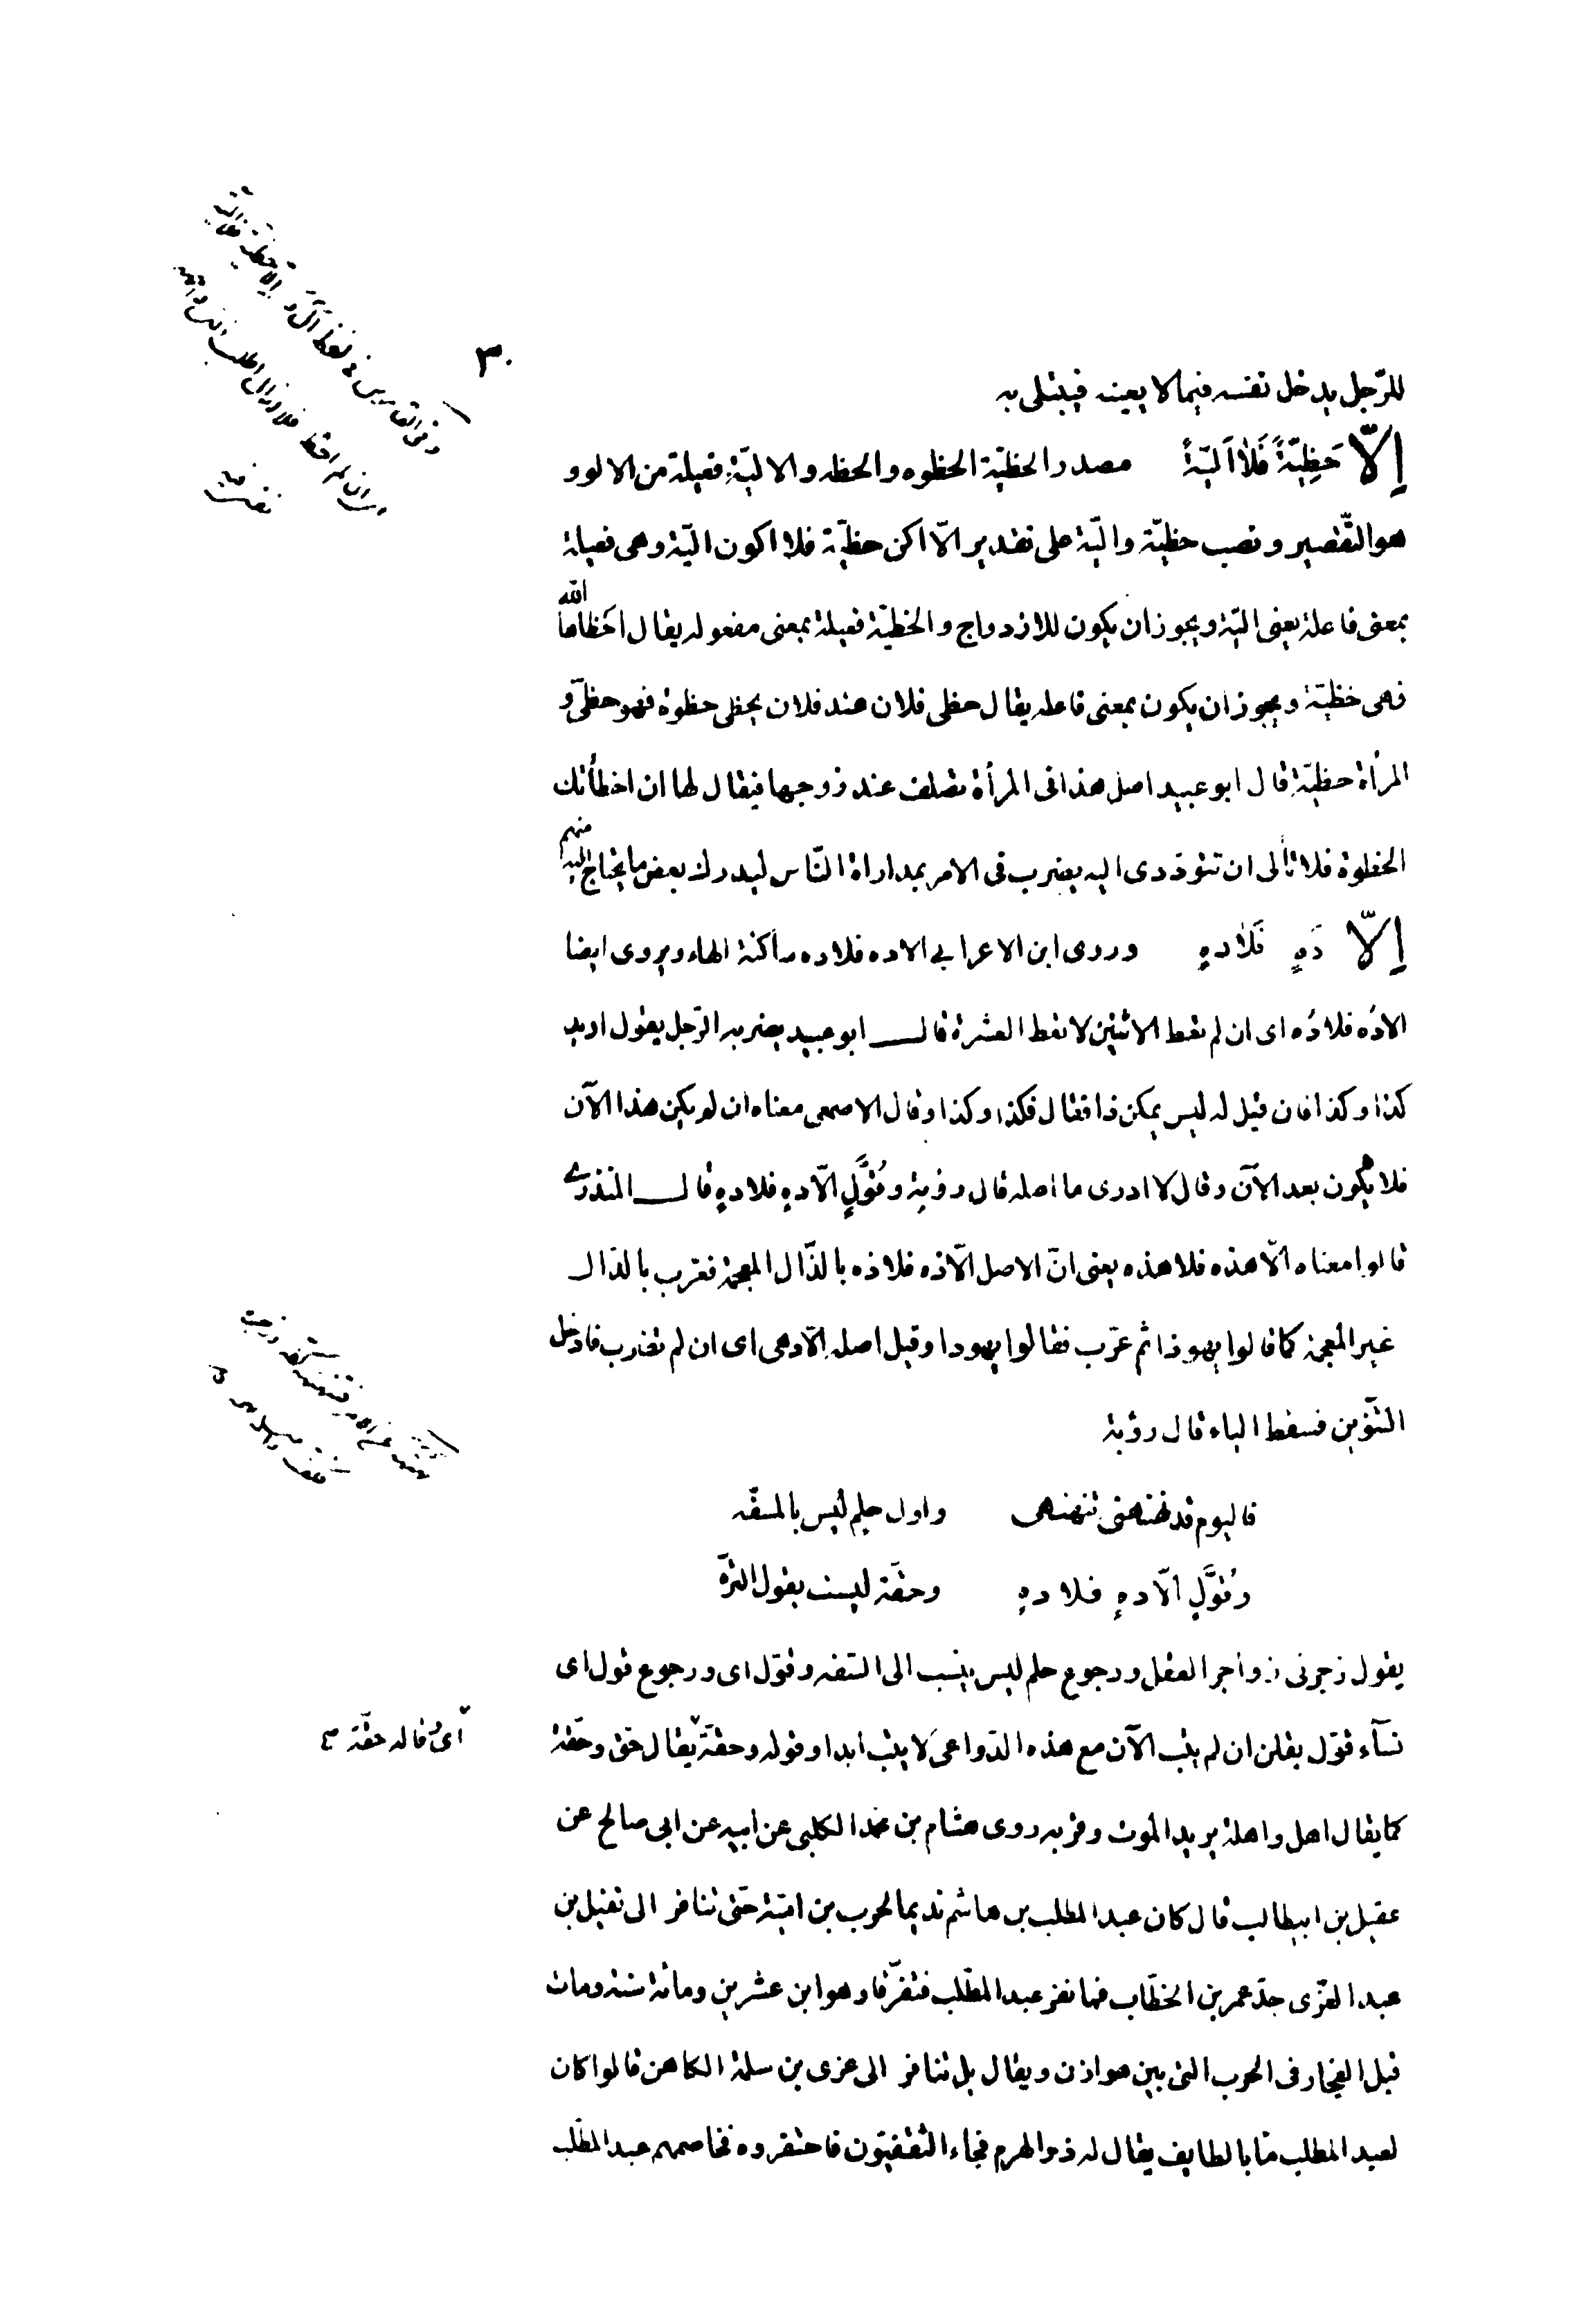 ٣٠
للرّجل يدخل نفسه فيما لا يعينه فيبتلى به
اِلاّ حَظِيّةً فَلاٰ اَليّةً مصدر الحظيّة الحظوه والحظه والاليّة فعيلة من الالو و
هو التّقصير ونصب حظيّة واليّة على تقدير الّا اكن حظيّة فلا اكون اليّة وهى فعيلة
بمعنى فاعلة يعنى اليّة ويجوز ان يكون للازدواج والحظيّة فعيلة بمعنى مفعوله يقال احظاها الله
فهى حظيّة ويجوز ان يكون بمعنى فاعله يقال حظى فلان عند فلان يحظى حظوة فهو حظىّ و
المرأة حظيّة قال ابو عبيد اصل هذا فى المرأة تصلف عند زوجها فيقال لها ان اخطأتك
الحظوة فلا تألى ان تتودّدى اليه يضرب فى الامر بمداراة النّاس ليدرك بعض ما يحتاج اليه منهم
اِلاّ دَهٍ فَلاٰ دهٍ وروى ابن الاعرابي الا ده فلا ده ساكنة الهاء ويروى ايضا
الا دُه فلا دُه اى ان لم تعط الاثنين لا تعط العشرة قال ابو عبيد يضربه الرّجل يقول اريد
كذا وكذا فان قيل له ليس يمكن ذا فقال فكذا وكذا وقال الاصمعى معناه ان لم يكن هذا الآن
فلا يكون بعد الآن وقال لا ادرى ما اصله قال رؤبة وقُوَّلٍ الّا دهٍ فلا دهٍ قال المنذرى
قالوا معناه الّا هذه فلا هذه يعنى انّ الاصل الّا ذه فلا ذه بالذّال المعجمة فعرّب بالدال
غير المعجمة كما قالوا يهوذا ثم عرّب فقالوا يهودا وقيل اصله الّا دهى اى ان لم تضرب فادخل
التّنوين فسقط الياء قال رؤبة
فاليوم قد نهنهنى تنهنهى واول حلم ليس بالمسفّه
وقُوَّلٍ الّا دهٍ فلا دهٍ وحقّة ليست بقول التّرّه
يقول زجرنى زواجر العقل ورجوع حلم ليس ينسب الى السّفه وقوّل اى ورجوع قول اى
نسآء قوّل يقلن ان لم يتب الآن مع هذه الدّواعى لا يتب ابدا وقوله وحقّة يقال حق وحقّة
كما يقال اهل واهلة يريد الموت وقربه روى هشام بن محمد الكلبى عن ابيه عن ابى صالح عن
عقيل بن ابيطالب قال كان عبد المطلب بن هاشم نديما لحرب بن اميّة حتّى تنافر الى نفيل بن
عبد العزّى جدّ عمر بن الخطّاب فما نفر عبد المطّلب فتفرّقا وهو ابن عشرين ومائة سنة ومات
قبل الفجار فى الحرب التى بين هوازن ويقال بل تنافر الى عزى بن سلمة الكاهن قالوا كان
لعبد المطلب ما بالطايف يقال له ذو الهرم فجاء الثّقفيّون فاحتفروه فخاصمهم عبد المطّلب
اى وقاله حقّة